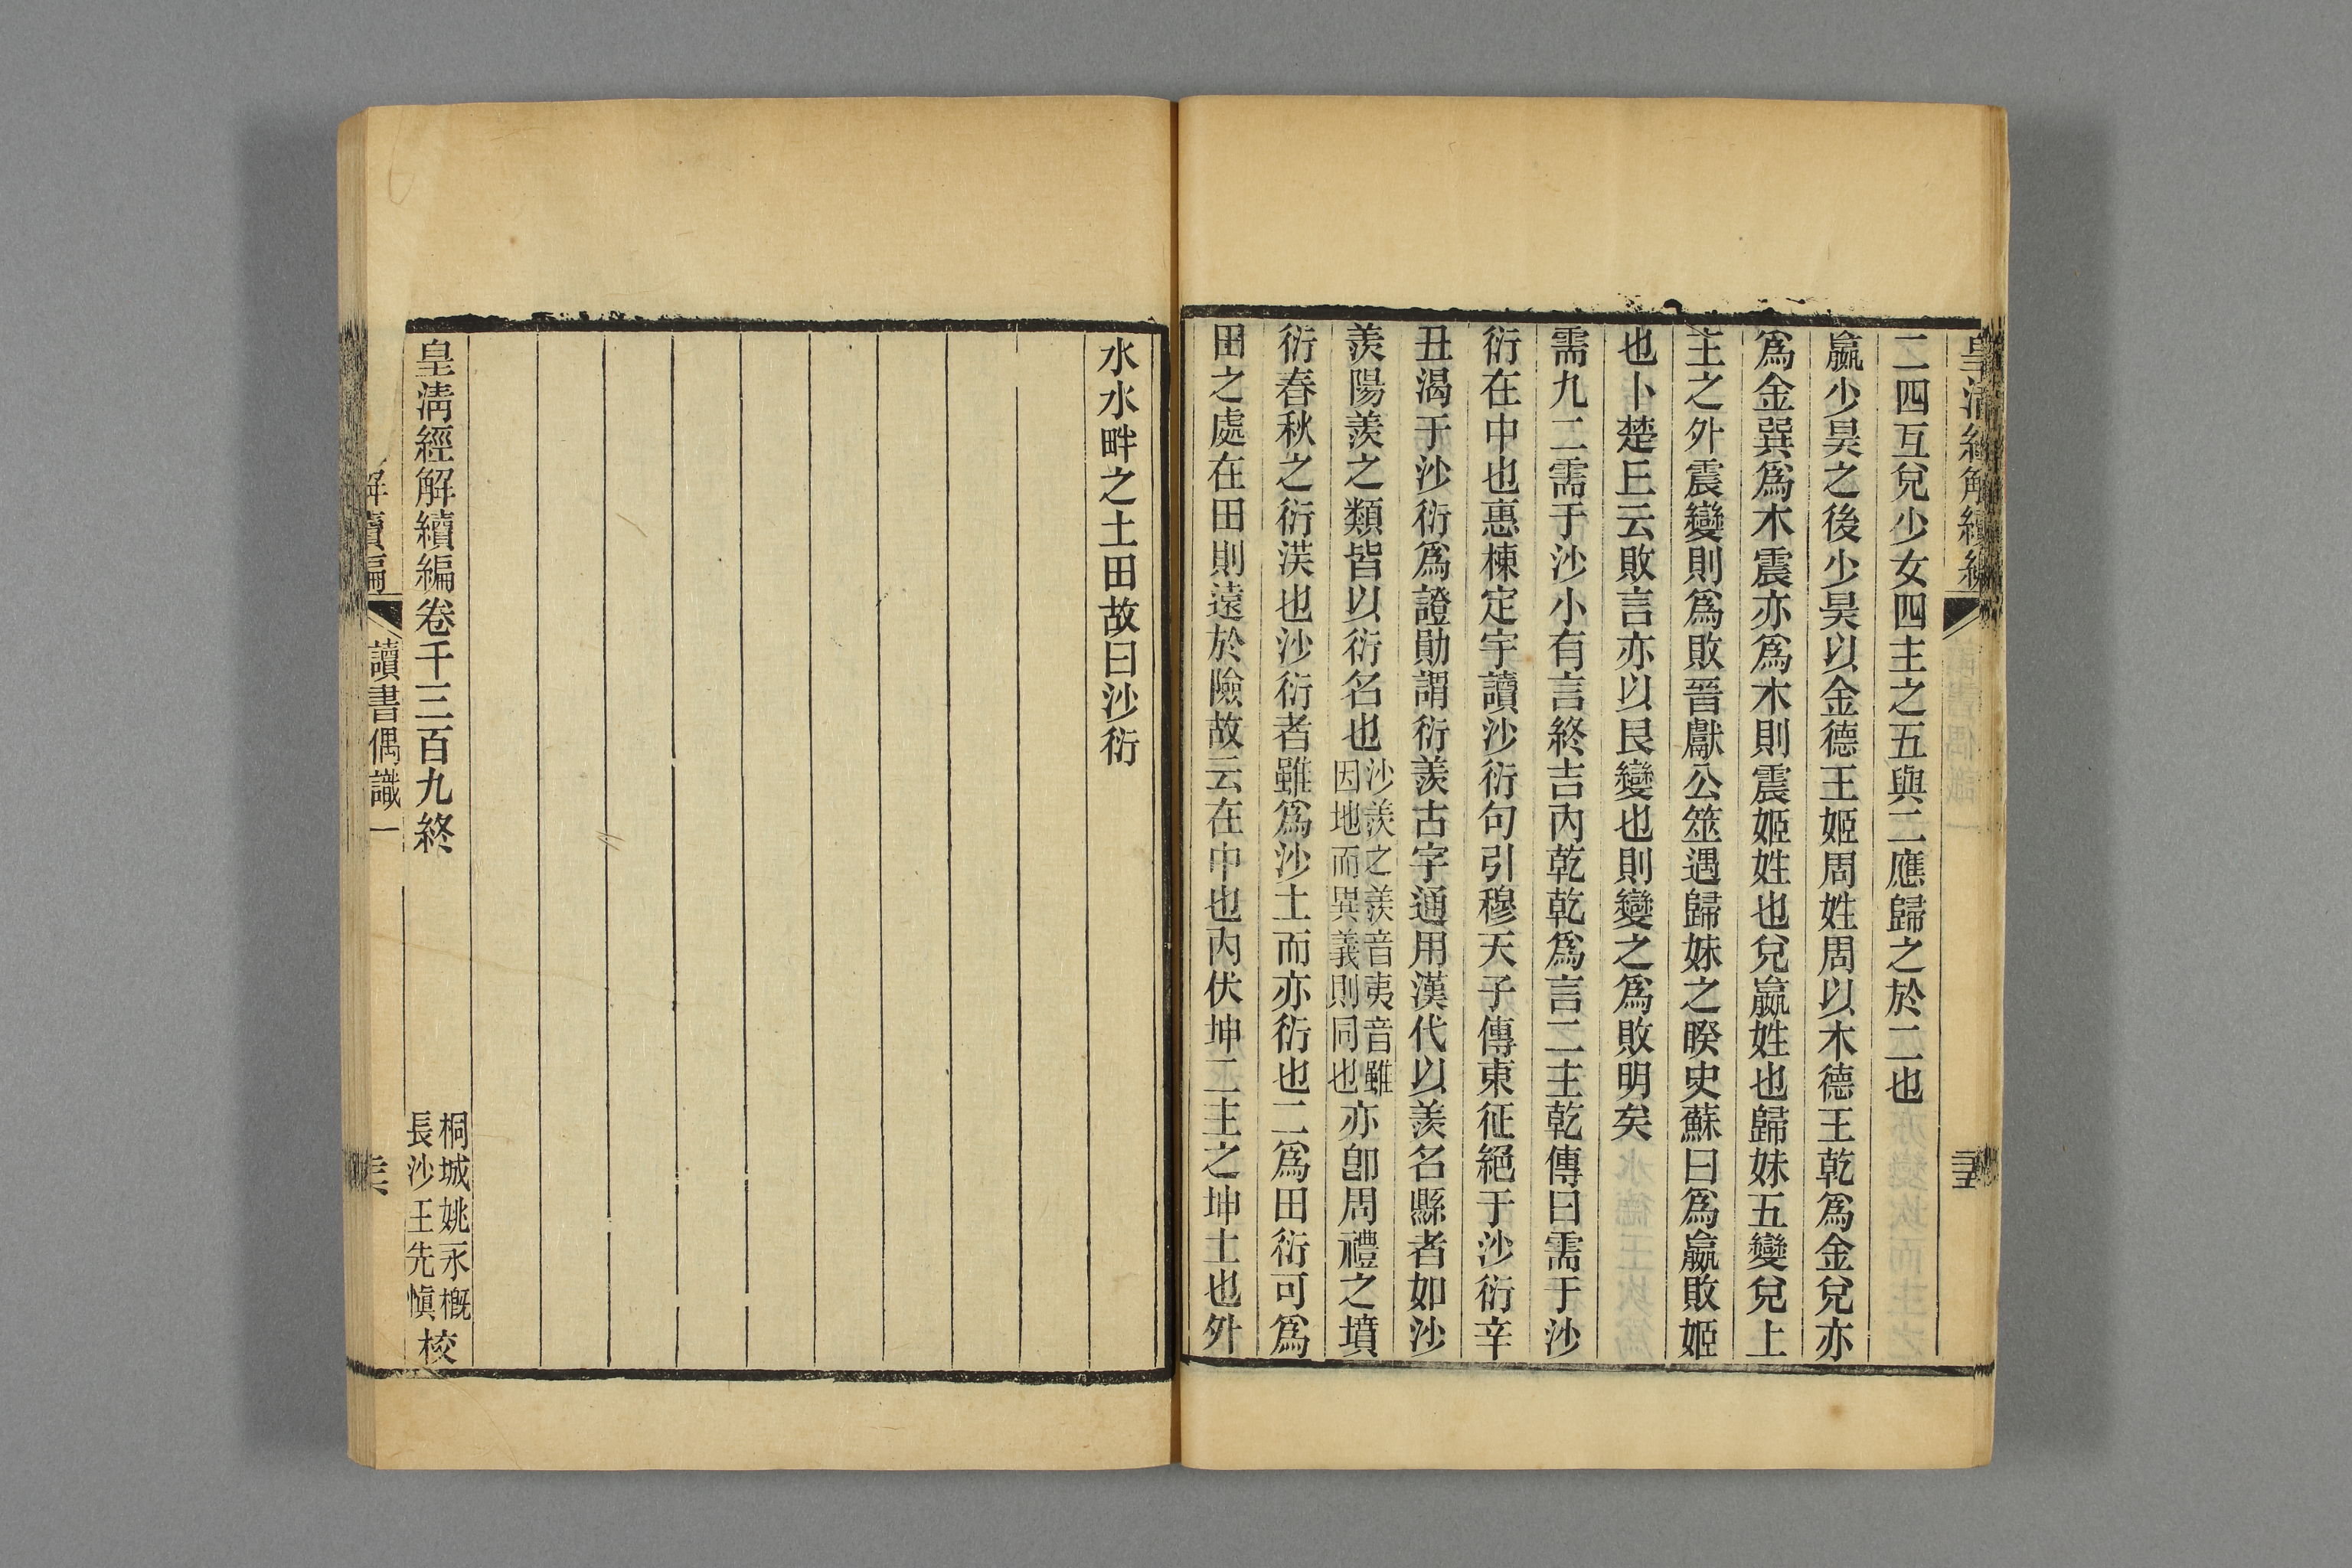 皇清經解續編
二四互兌少女四主之五與二應歸之於二也
嬴少昊之後少昊以金德王姬周姓周以木德王乾爲金兌亦
爲金巽爲木震亦爲木則震姬姓也兌嬴姓也歸妹五變兌上
主之外震變則爲敗晉獻公筮遇歸妹之睽史蘇曰爲嬴敗姬
也卜楚丘云敗言亦以艮變也則變之爲敗明矣
需九二需于沙小有言終吉內乾乾爲言二主乾傳曰需于沙
衍在中也惠棟定宇讀沙衍句引穆天子傳東征絕于沙衍辛
丑渴于沙衍爲證勛謂衍羨古字通用漢代以羨名縣者如沙
羨陽羨之類皆以衍名也沙羨之羨音夷音雖因地而異義則同也亦卽周禮之墳
衍春秋之衍渼也沙衍者雖爲沙土而亦衍也二爲田衍可爲
田之處在田則遠於險故云在中也內伏坤二主之坤土也外
水水畔之土田故曰沙衍
皇清經解續編卷千三百九終
桐城姚永概
長沙王先愼
校
讀書偶識一